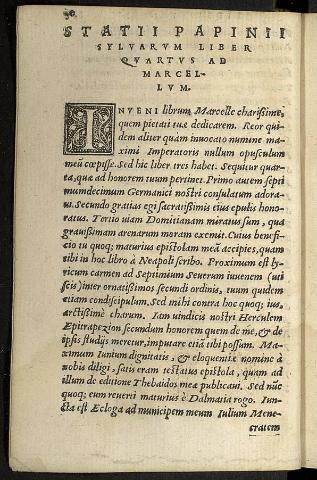 STATII PAPINII
SYLVARVM LIBER
QVARTVS AD
MARCEL-
LVM.
INVENI librum Marcelle charissime,
quem pietati tuæ dedicarem. Reor qui
dem aliter quàm inuocato numine ma
ximi Imperatoris nullum opusculum
meũ cœpisse. Sed hic liber tres habet. Sequitur quar
ta, quæ ad honorem tuum pertinet. Primo autem septi
mumdecimum Germanici nostri consulatum adora
tus. Secundo gratias egi sacratissimis eius epulis hono
ratus. Tertio uiam Domitianam miratus sum, qua
grauissimam arenarum moram exemit. Cuius benefi-
cio tu quoq; maturius epistolam meã accipies, quam
tibi in hoc libro à Neapoli scribo. Proximum est ly-
ricum carmen ad Septimium Seuerum iuuenem (uti
scis) inter ornatissimos secundi ordinis, tuum quidem
etiam condiscipulum. Sed mihi contra hoc quoq; ius,
arctissimè charum. Iam uindicis nostri Herculem
Epitrapezion secundum honorem quem de me, & de
ipsis studijs meretur, imputare etiã tibi possum. Ma-
ximum Iunium dignitatis, & eloquentiæ nomine à
nobis diligi, satis eram testatus epistola, quam ad
illum de editione Thebaidos meæ publicaui. Sed nũc
quoq; eum reuerti maturius è Dalmatia rogo. Iun-
cta est Ecloga ad municipem meum Iulium Mene-
cratem